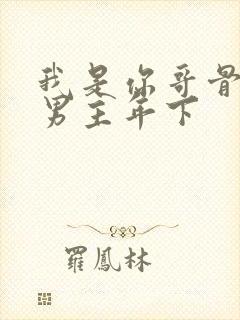 我是你哥骨
男主年下
羅鳳林